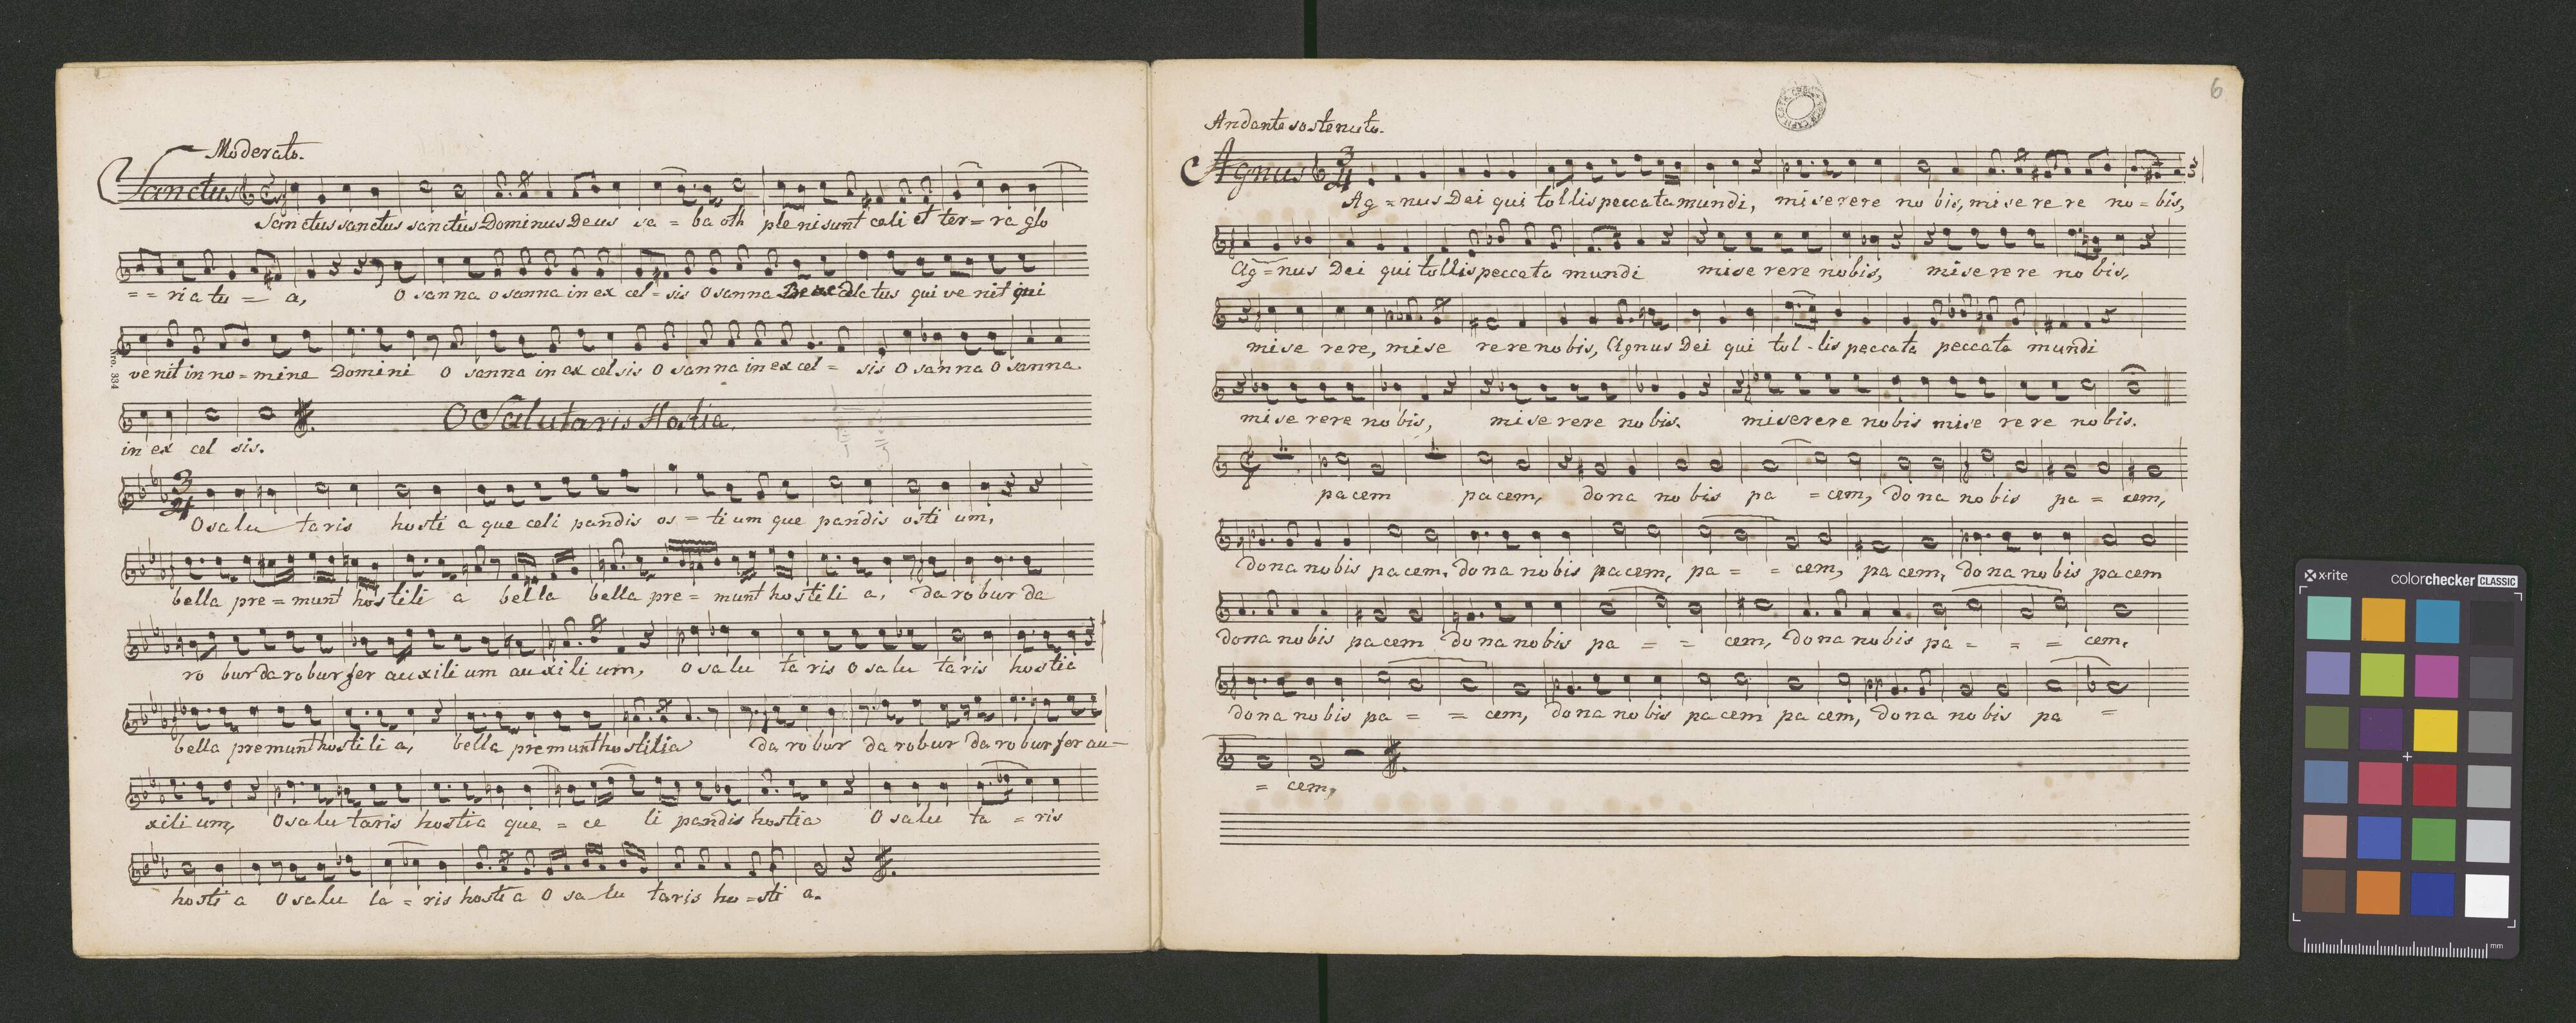 Moderato.
Sanctus
Sanctus sanctus sanctus Dominus Deus sa = ba oth pleni sunt celi et ter = ra glo
= = ria tu = a, O sanna o sanna in ex cel = sis O sanna Benedictus qui ve nit qui
ve nit in no = mine Domini O sanna in ex celsis O sanna in ex cel = sis O sanna O sanna
in ex cel sis.
O Salutaris Hostia.
O salu taris hosti a que celi pandis os = ti um que pandis osti um,
bella pre = munt hostili a bella bella pre = munt hostili a, da robur da
ro bur da robur fer auxili um auxili um, o salu ta ris O salu taris hostia
bella premunt hostili a, bella premunt hostilia da ro bur da robur da robur fer au-
xili um, O salu taris hostia que = ce li pandis hostia O salu ta = ris
hosti a O salu ta = ris hosti a O sa lu taris ho = sti a.
Nro. 334
6
Andante sostenuto.
Agnus
Ag = nus Dei qui tollis peccata mundi, miserere no bis, mi se re re no = bis,
Ag = nus Dei qui tollis peccata mundi mise rere nobis, mise re re no bis,
mise rere, mise rere nobis, Agnus Dei qui tol - lis peccata peccata mundi
mise rere no bis, mise rere nobis. miserere nobis mise re re nobis.
pacem pacem, dona no bis pa = cem, dona nobis pa = cem,
dona nobis pacem, dona nobis pacem, pa = = cem, pacem, dona nobis pacem
dona nobis pacem dona nobis pa = = cem, dona nobis pa = = = cem,
dona nobis pa = = cem, dona nobis pacem pacem, dona nobis pa =
= cem,
x-rite
colorchecker CLASSIC
mm